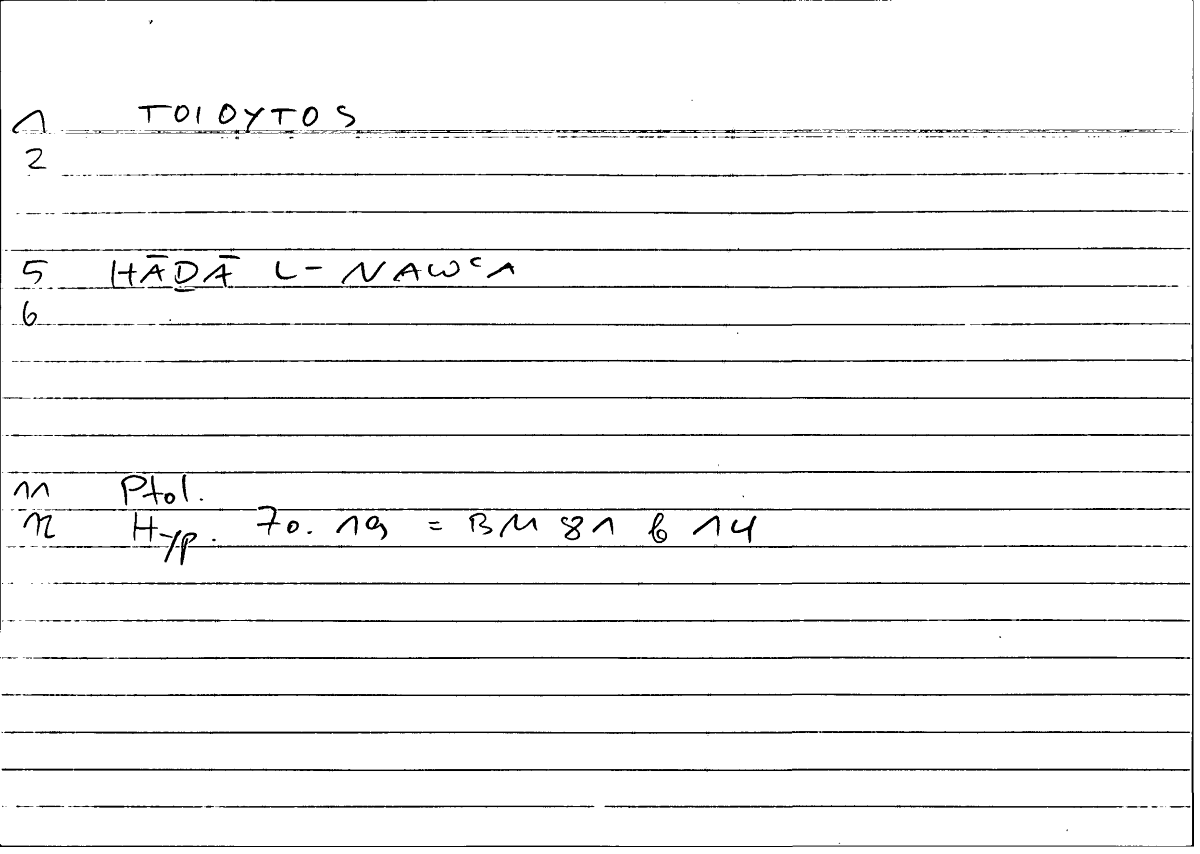 1 TOIOYTOS
2
5 HĀḎĀ L-NAWʿA
6
11 Ptol.
12 Hyp. 70. 19 = BM 81 b 14